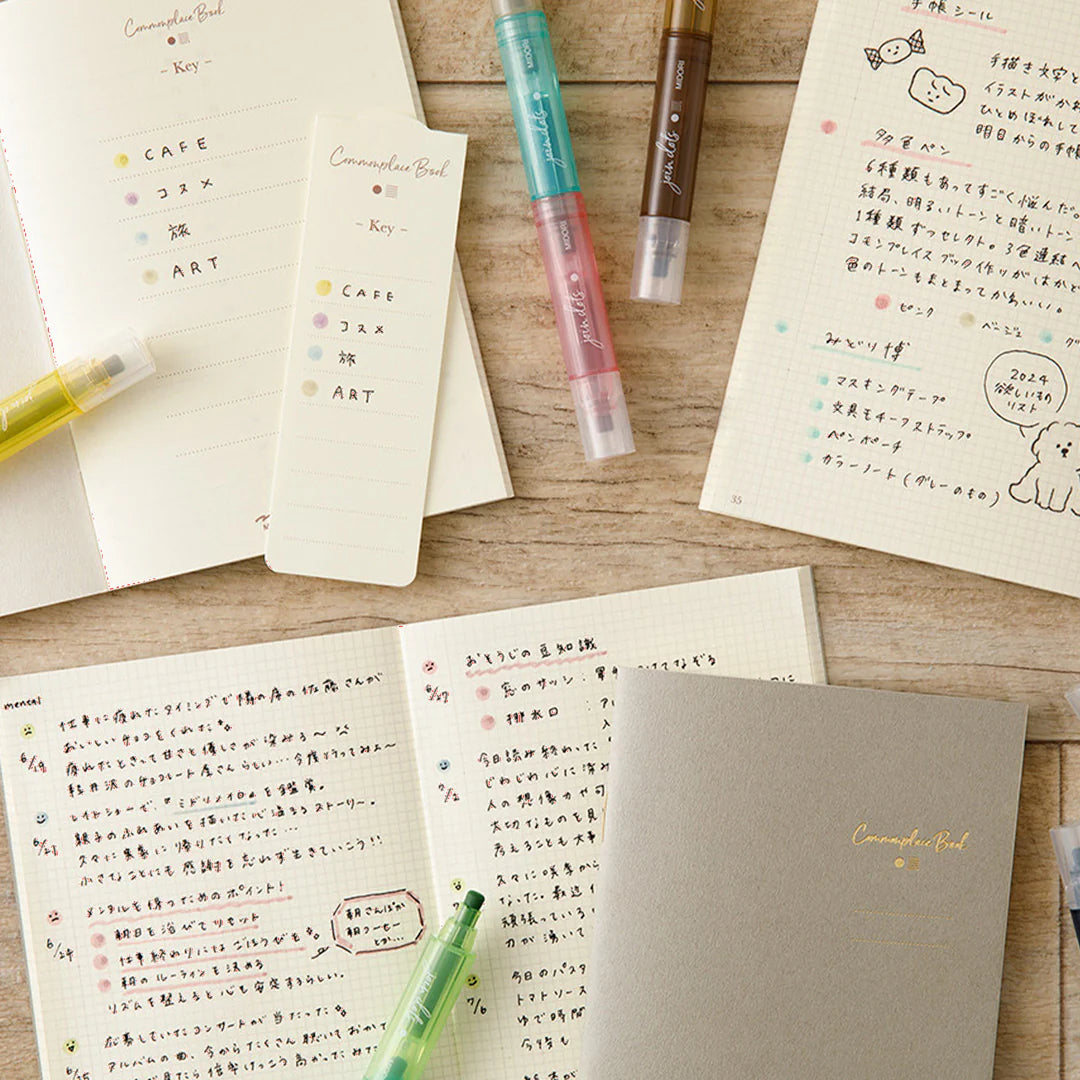 Commonplace Book
- Key -
CAFE
コスメ
旅
ART
Commonplace Book
- Key -
CAFE
コスメ
旅
ART
MIDORI
join dots
MIDORI
join dots
MIDORI
join dots
手帳シール
手描き文字と
イラストがかわ
ひとめぼれして
明日からの手帳
多色ペン
6種類もあってすごく悩んだ。
結局、明るいトーンと暗いトーン
1種類ずつセレクト。3色連結ペ
コモンプレイスブック作りがはかど
色のトーンもまとまってかわいい。
ピンク
ベージュ
グ
みどり博
マスキングテープ
文具モチーフストラップ
ペンポーチ
カラーノート(グレーのもの)
2024
欲しいもの
リスト
35
mental
6/19
仕事に疲れたタイミングで隣の席の佐藤さんが
おいしいチョコをくれた
疲れたときって甘さと優しさが染みる〜
軽井沢のチョコレート屋さんらしい…今度行ってみよ〜
6/21
レイトショーで、『ミドリノイロ』を鑑賞。
親子のふれあいを描いた心温まるストーリー。
久々に実家に帰りたくなった…
小さなことにも感謝を忘れず生きていこう!!
6/24
メンタルを保つためのポイント!
朝日を浴びてリセット
仕事終わりにはごほうびを
朝のルーティンを決める
リズムを整えると心も安定するらしい。
朝さんぽか
朝コーヒー
とか…
応募していたコンサートが当たった
アルバムの曲、今からたくさん聴いておかな
6/27
おそうじの豆知識
窓のサッシ:
排水口:
7/2
今日読み終わった
じわじわ心に染み
人の想像力や可
大切なものを見
考えることも大事
久々に咲季から
なった。最近
頑張っている
力が湧いて
7/6
今日のパスタ
トマトソース
ゆで時間
今後も
Commonplace Book
join dots